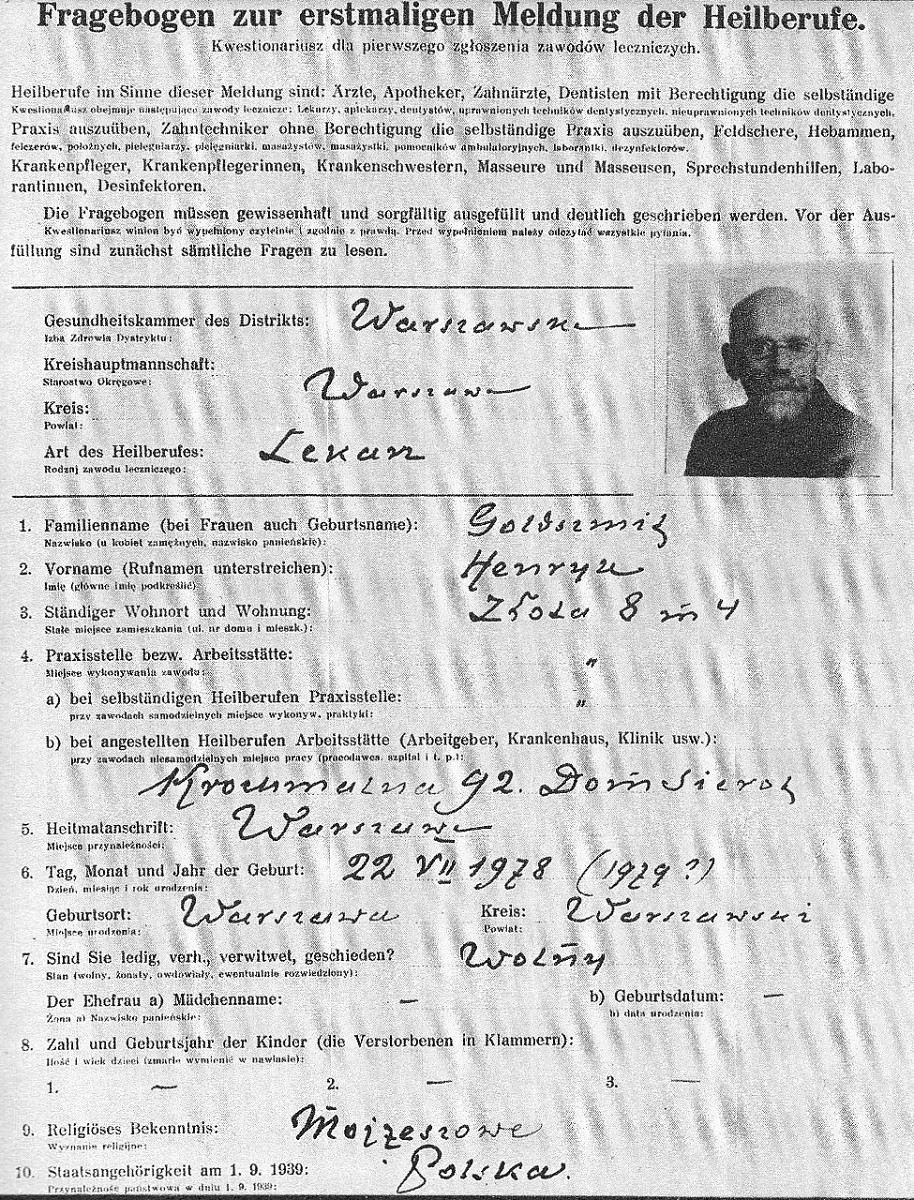 Fragebogen zur erstmaligen Meldung der Heilberufe.
Kwestionariusz dla pierwszego zgłoszenia zawodów leczniczych.
Heilberufe im Sinne dieser Meldung sind: Ärzte, Apotheker, Zahnärzte, Dentisten mit Berechtigung die selbständige
Kwestionariusz obejmuje następujące zawody lecznicze: Lekarzy, aptekarzy, dentystów, uprawnionych techników dentystycznych, nieuprawnionych techników dentystycznych,
Praxis auszuüben, Zahntechniker ohne Berechtigung die selbständige Praxis auszuüben, Feldschere, Hebammen,
felczerów, położnych, pielęgniarzy, pielęgniarki, masażystów, masażystki, pomocników ambulatoryjnych, laborantki, dezynfektorów.
Krankenpfleger, Krankenpflegerinnen, Krankenschwestern, Masseure und Masseusen, Sprechstundenhilfen, Labo-
rantinnen, Desinfektoren.
Die Fragebogen müssen gewissenhaft und sorgfältig ausgefüllt und deutlich geschrieben werden. Vor der Aus-
Kwestionariusz winien być wypełniony czytelnie i zgodnie z prawdą. Przed wypełnieniem należy odczytać wszystkie pytania.
füllung sind zunächst sämtliche Fragen zu lesen.
Gesundheitskammer des Distrikts: Warszawski
Izba Zdrowia Dystryktu:
Kreishauptmannschaft:
Starostwo Okręgowe:
Warszawa
Kreis:
Powiat:
Art des Heilberufes: Lekarz
Rodzaj zawodu leczniczego:
1. Familienname (bei Frauen auch Geburtsname): Goldszmit
Nazwisko (u kobiet zamężnych, nazwisko panieńskie):
2. Vorname (Rufnamen unterstreichen): Henryk
Imię (główne imię podkreślić)
3. Ständiger Wohnort und Wohnung: Złota 8 m 4
Stałe miejsce zamieszkania (ul. nr domu i mieszk.):
4. Praxisstelle bezw. Arbeitsstätte: "
Miejsce wykonywania zawodu:
a) bei selbständigen Heilberufen Praxisstelle: "
przy zawodach samodzielnych miejsce wykonyw. praktyki:
b) bei angestellten Heilberufen Arbeitsstätte (Arbeitgeber, Krankenhaus, Klinik usw.):
przy zawodach niesamodzielnych miejsce pracy (pracodawca, szpital i t. p.):
Krochmalna 92. Dom Sierot
5. Heitmatanschrift: Warszawa
Miejsce przynależności:
6. Tag, Monat und Jahr der Geburt: 22 VII 1978 (1979?)
Dzień, miesiąc i rok urodzenia:
Geburtsort: Warszawa Kreis: Warszawski
Miejsce urodzenia: Powiat:
7. Sind Sie ledig, verh., verwitwet, geschieden? Wolny
Stan (wolny, żonaty, owdowiały, ewentualnie rozwiedziony):
Der Ehefrau a) Mädchenname: — b) Geburtsdatum: —
Żona a) Nazwisko panieńskie: b) data urodzenia:
8. Zahl und Geburtsjahr der Kinder (die Verstorbenen in Klammern):
Ilość i wiek dzieci (zmarłe wymienić w nawiasie):
1. — 2. — 3. —
9. Religiöses Bekenntnis: Mojżeszowe
Wyznanie religijne:
10. Staatsangehörigkeit am 1. 9. 1939: Polska.
Przynależność państwowa w dniu 1. 9. 1939: